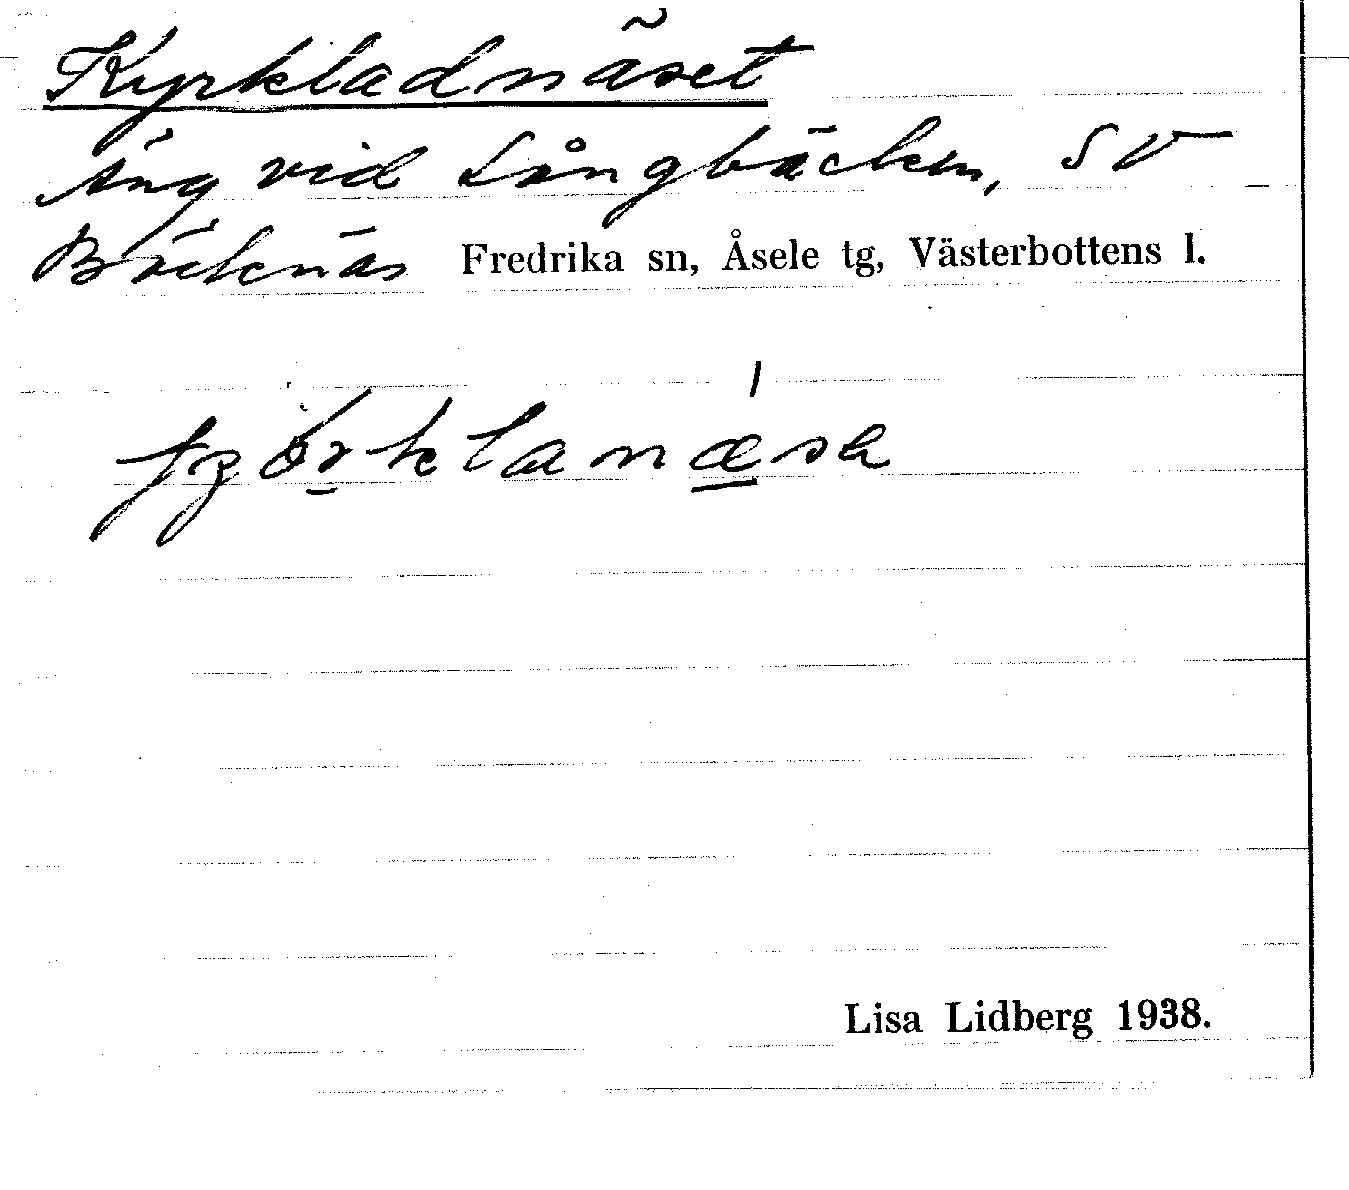 Kyrkladnäset
Äng vid Långbäcken, SV
Bäcknäs Fredrika sn, Åsele tg, Västerbottens l.
Lisa Lidberg 1938.